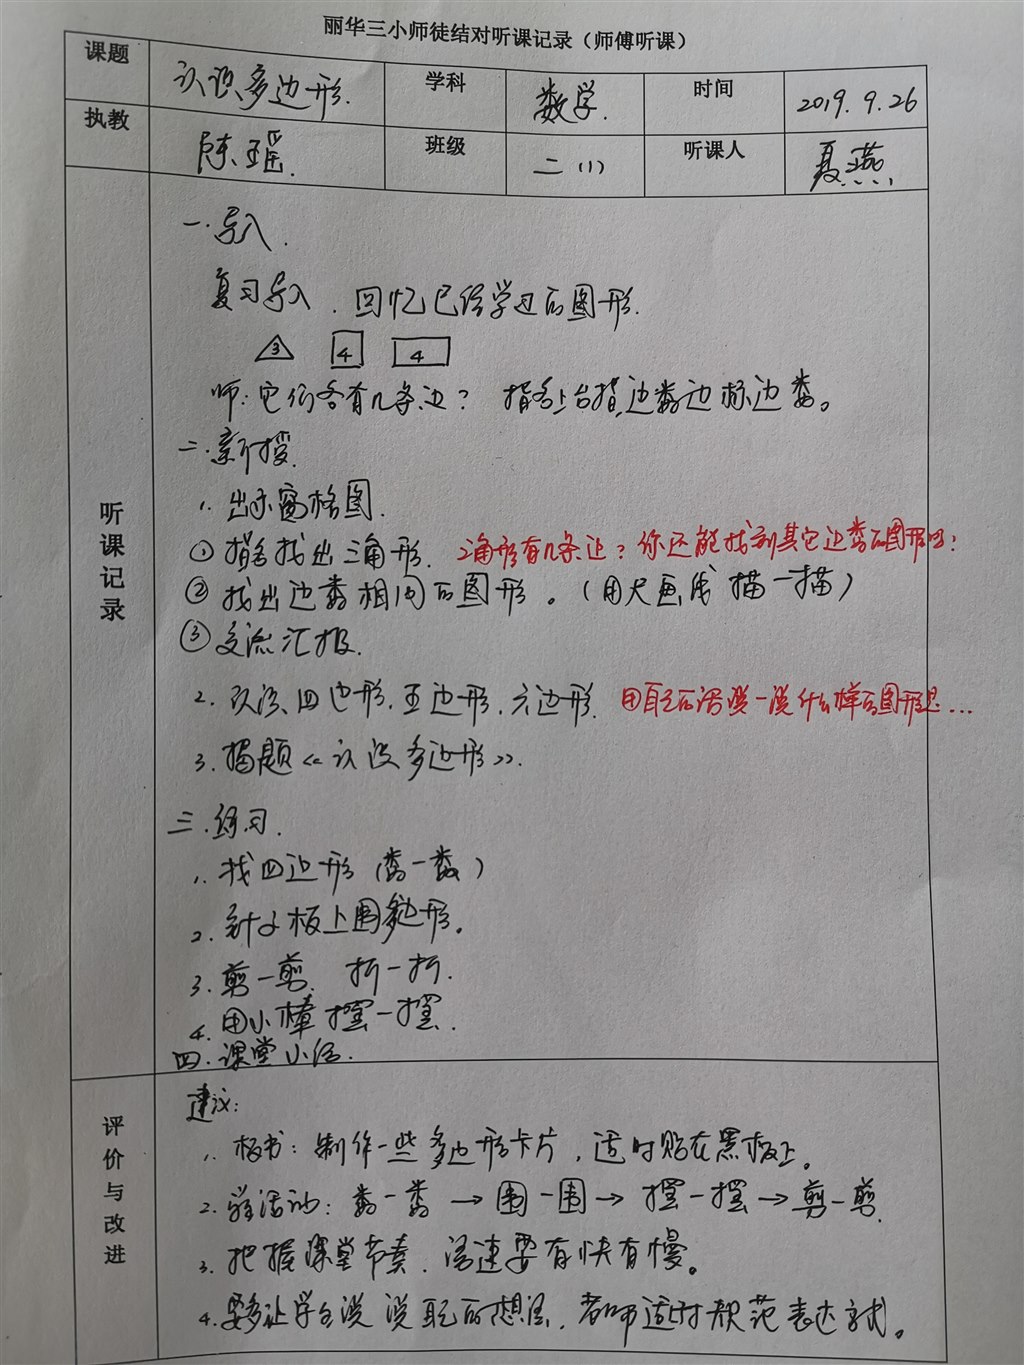 丽华三小师徒结对听课记录（师傅听课）
课题 认识多边形. 学科 数学. 时间 2019.9.26
执教 陈瑶. 班级 二（1） 听课人 聂燕
听课记录
一.导入.
复习导入.回忆已经学过的图形.
3 4 4
师:它们各有几条边？ 指名上台指,边数边标边数。
二.新授.
1.出示窗格图.
①指名找出三角形. 三角形有几条边？你还能找到其它边数的图形吗？
②找出边数相同的图形。（用尺画线描一描）
③交流汇报.
2.认识四边形.五边形.六边形. 用自己的话说一说什么样的图形是…
3.揭题《认识多边形》.
三.练习.
1.找四边形（数一数）
2.钉子板上围多边形。
3.剪一剪.折一折.
4.用小棒摆一摆.
四.课堂小结.
评价与改进
建议:
1.板书：制作一些多边形卡片，适时贴在黑板上。
2.学生活动：数一数→围一围→摆一摆→剪一剪.
3.把握课堂节奏.语速要有快有慢。
4.要多让学生说说自己的想法，老师适时规范表达方式。